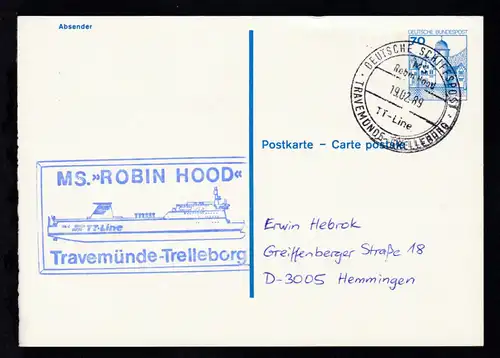 Absender
DEUTSCHE BUNDESPOST
DEUTSCHE SCHIFFSPOST
MS
Robin Hood
19.02.89
TT-Line
TRAVEMÜNDE-TRELLEBORG
Postkarte – Carte postale
MS.»ROBIN HOOD«
TT-Line
Travemünde-Trelleborg
Erwin Hebrok
Greiffenberger Straße 18
D-3005 Hemmingen